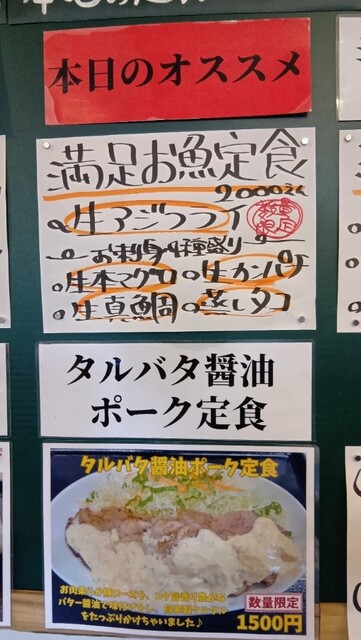 本日のオススメ
満足お魚定食
2000えん
生アジフライ
お刺身4種盛り
生本マグロ
生カンパチ
生真鯛
蒸しタコ
タルバタ醤油
ポーク定食
タルバタ醤油ポーク定食
バター醤油で味付け
をたっぷりかけちゃいました♪
数量限定
1500円